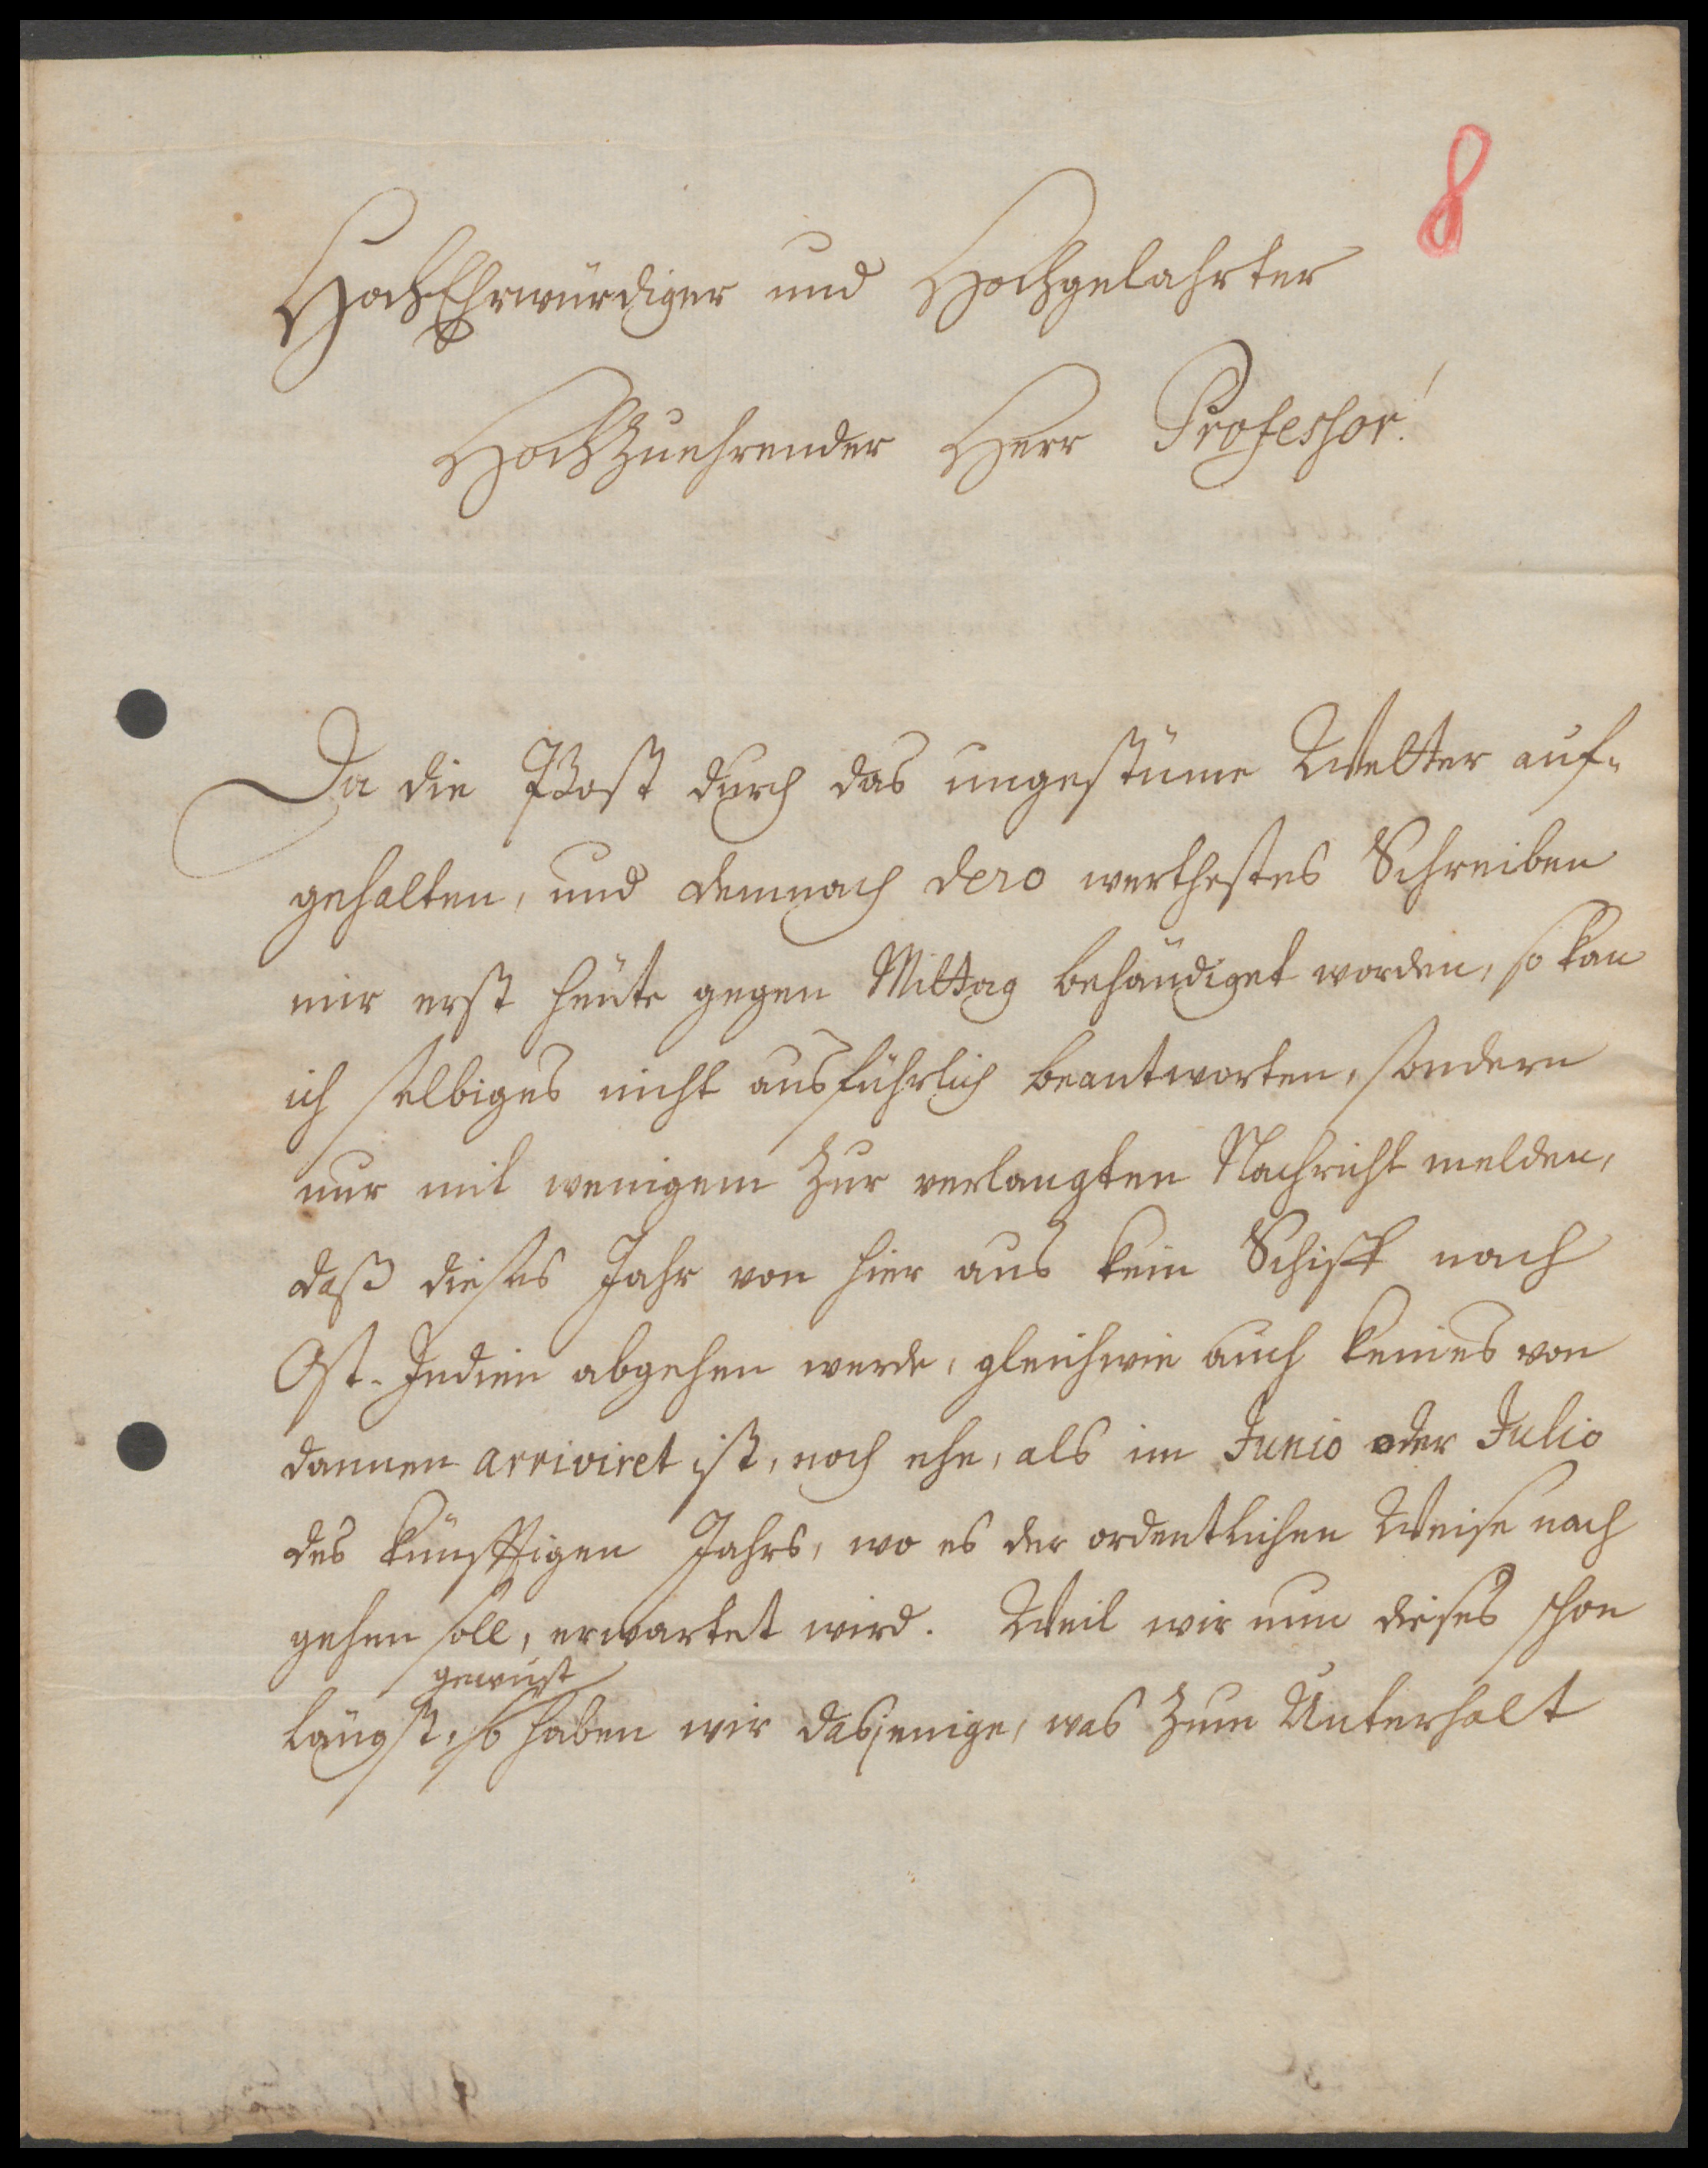 8
HochEhrwürdiger und Hochgelahrter
HochZuehrender Herr Professor!
Da die Post durch das ungestüme Wetter auf-
gehalten, und demnach dero werthestes Schreiben
mir erst heute gegen Mittag behändiget worden, so kan
ich selbiges nicht ausführlich beantworten, sondern
nur mit wenigem zur verlangten Nachricht melden,
daß dieses Jahr von hier aus kein Schiff nach
Ost-Indien abgehen werde, gleichwie auch keines von
dannen arriviret ist, noch ehe, als im Junio oder Julio
des künfftigen Jahrs, wo es der ordentlichen Weise nach
gehen soll, erwartet wird. Weil wir nun dieses schon
gewust
längst, so haben wir dasjenige, was zum Unterhalt